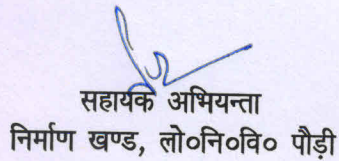 सहायक अभियन्ता
निर्माण खण्ड, लो०नि०वि० पौड़ी